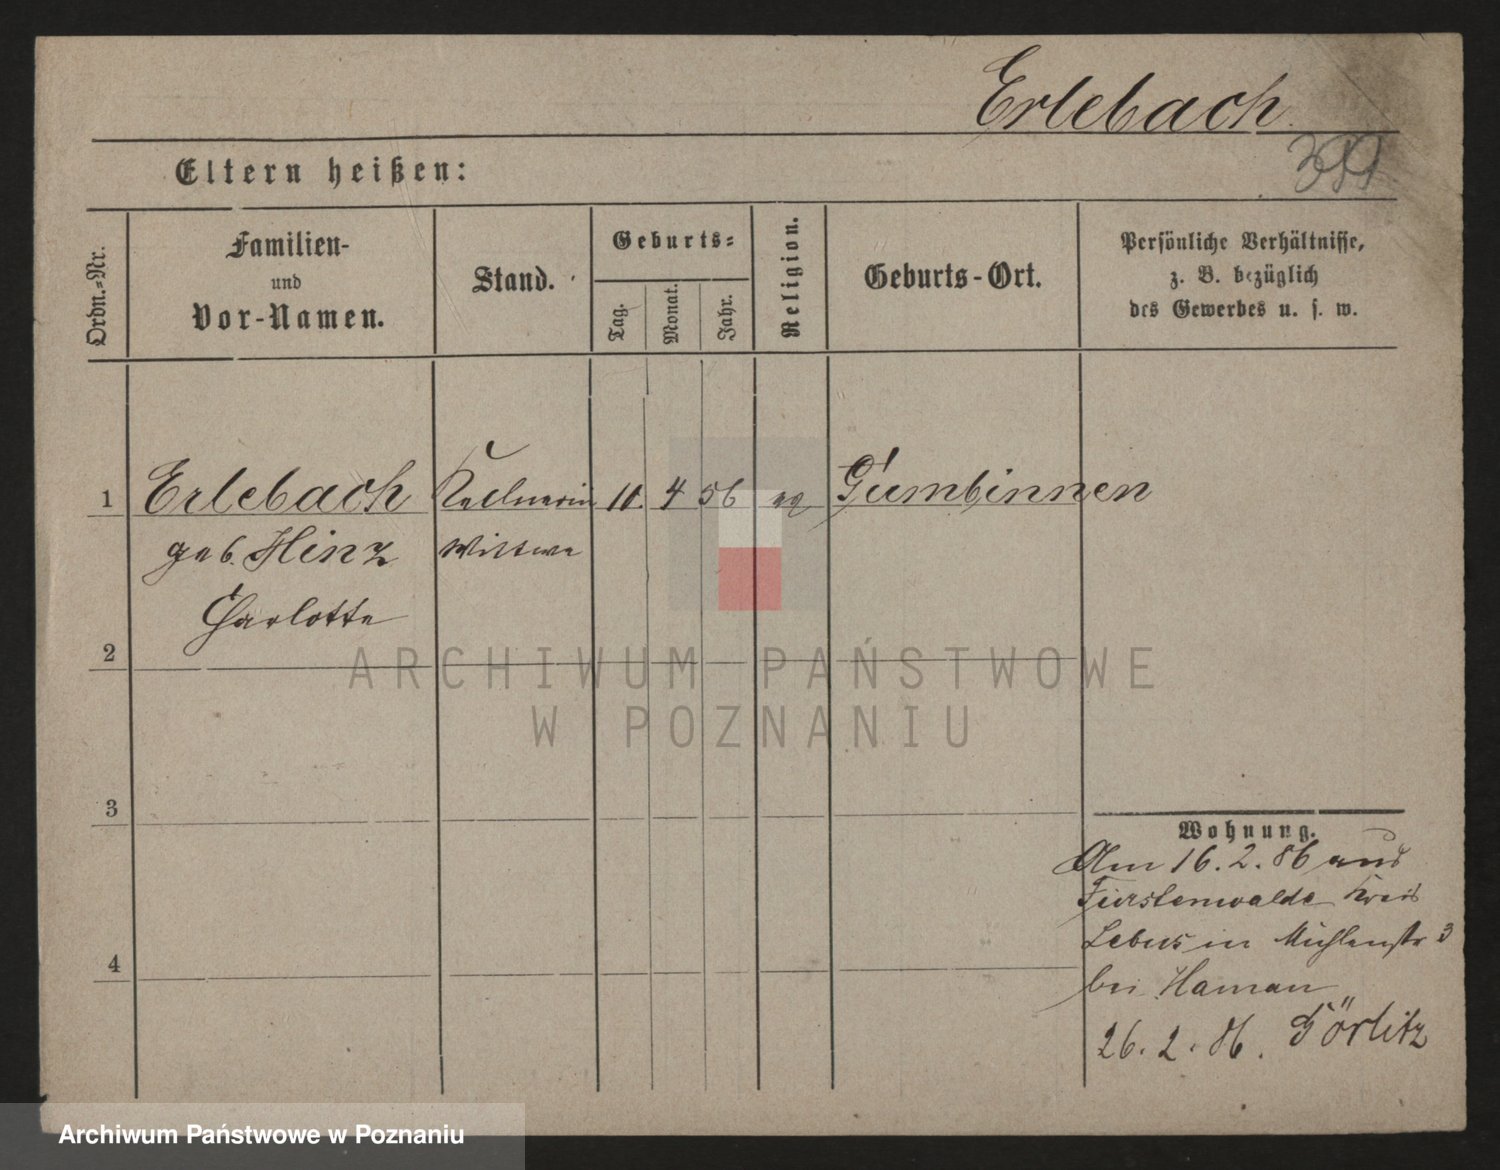 Erlebach
Eltern heißen:
399
Ordn.-Nr.
Familien-
und
Vor-Namen.
Stand.
Geburts-
Tag.
Monat.
Jahr.
Religion.
Geburts-Ort.
Persönliche Verhältnisse,
z. B. bezüglich
des Gewerbes u. s. w.
1 Erlebach Kellnerin 11. 4 56 ev Gumbinnen
geb. Hinz Wittwe
Charlotte
2
ARCHIWUM PAŃSTWOWE
W POZNANIU
3
Wohnung.
Am 16. 2. 86 aus
Fürstenwalde Kreis
Lebus in Mühlenstr 3
bei Haman
4
26. 2. 86. Görlitz
Archiwum Państwowe w Poznaniu